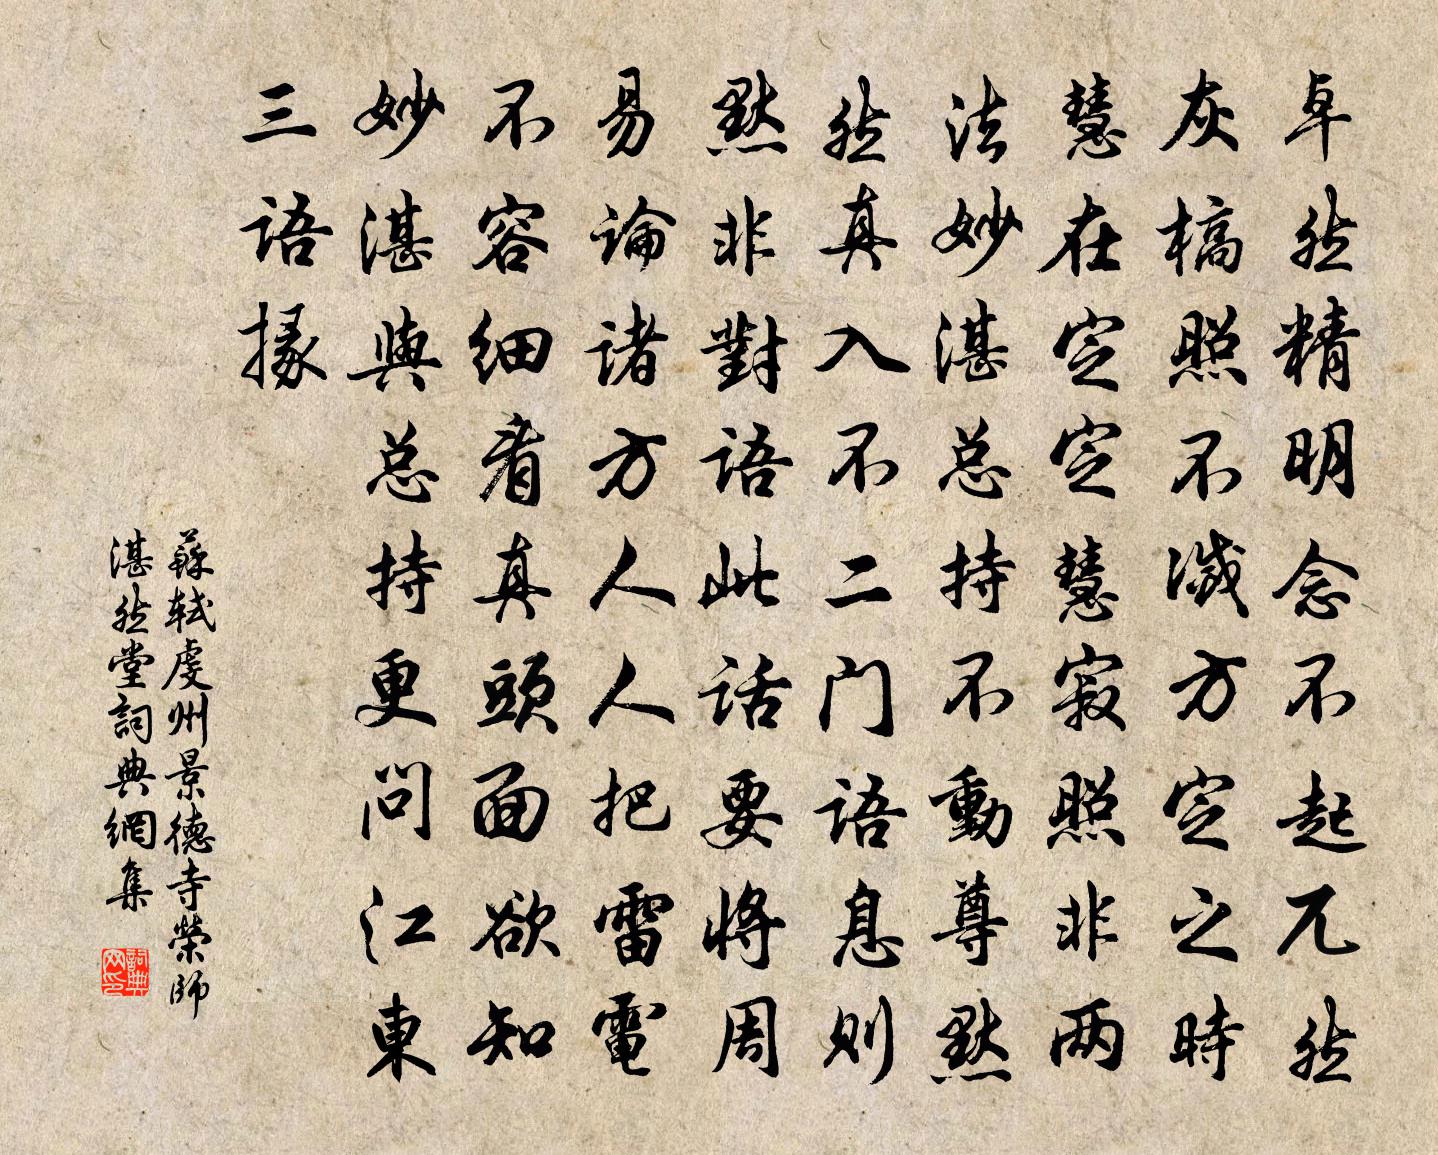 卓然精明念不起兀然
灰槁照不滅方定之時
慧在定定慧寂照非两
法妙湛总持不動尊默
然真入不二门語息則
默非對語此話要将周
易論諸方人人把雷電
不容細看真頭面欲知
妙湛與总持更問江東
三語掾
蘇轼虔州景德寺榮師
湛然堂詞典網集
詞典
网印